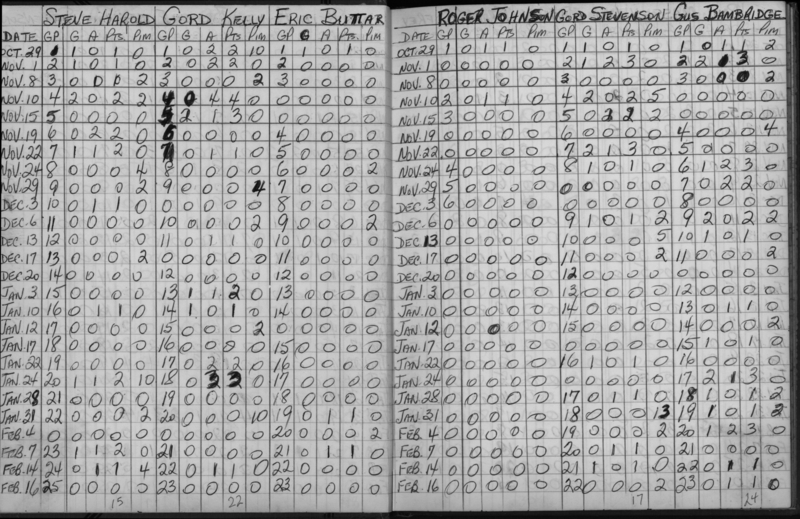 STEVE HAROLD GORD KELLY ERIC BUTTAR
DATE GP G A Pts. Pim GP G A Pts Pim GP G A Pts. Pim
OCT.29 1 1 0 1 0 1 0 2 2 10 1 1 0 1 0
NOV. 1 2 1 0 1 0 2 0 2 2 0 2 0 0 0 0
NOV. 8 3 0 0 0 2 3 0 0 0 2 3 0 0 0 0
NOV.10 4 2 0 2 2 4 0 4 4 0 0 0 0 0 0
NOV.15 5 0 0 0 0 5 2 1 3 0 0 0 0 0 0
NOV.19 6 0 2 2 0 6 0 0 0 0 4 0 0 0 0
NOV.22 7 1 1 2 0 7 0 1 1 0 5 0 0 0 0
NOV.24 8 0 0 0 4 8 0 0 0 0 6 0 0 0 2
NOV.29 9 0 0 0 2 9 0 0 0 4 7 0 0 0 0
DEC. 3 10 0 1 1 0 0 0 0 0 0 8 0 0 0 0
DEC. 6 11 0 0 0 0 10 0 0 0 2 9 0 0 0 2
DEC. 13 12 0 0 0 0 11 0 1 1 0 10 0 0 0 0
DEC.17 13 0 0 0 2 11 0 0 0 0
DEC 20 14 0 0 0 0 12 0 0 0 0 12 0 0 0 0
JAN. 3 15 0 0 0 0 13 1 1 2 0 13 0 0 0 0
JAN.10 16 0 1 1 0 14 1 0 1 0 14 0 0 0 0
JAN.12 17 0 0 0 0 15 0 0 0 2 0 0 0 0 0
JAN.17 18 0 0 0 0 16 0 0 0 0 15 0 0 0 0
JAN.22 19 0 0 0 0 17 0 2 2 0 16 0 0 0 0
JAN 24 20 1 1 2 10 18 0 3 3 0 17 0 0 0 0
JAN.28 21 0 0 0 0 19 0 0 0 0 18 0 0 0 0
JAN.31 22 0 0 0 2 20 0 0 0 10 19 0 1 1 0
FEB.4 0 0 0 0 0 0 0 0 0 0 20 0 0 0 2
FEB.7 23 1 1 2 0 21 0 0 0 0 21 0 1 1 0
FEB.14 24 0 1 1 4 22 0 1 1 0 22 0 0 0 0
FEB.16 25 0 0 0 0 23 0 0 0 0 23 0 0 0 0
15 22
ROGER JOHNSON GORD STEVENSON GUS BAMBRIDGE
DATE GP G A Pts. Pim GP G A Pts. Pim GP G A Pts. Pim
OCT.29 1 0 1 1 0 1 1 0 1 0 1 0 1 1 2
NOV. 1 0 0 0 0 0 2 1 2 3 0 2 2 1 3 0
NOV. 8 0 0 0 0 0 3 0 0 0 0 3 0 0 0 2
NOV.10 2 0 1 1 0 4 2 0 2 5 0 0 0 0 0
NOV.15 3 0 0 0 0 5 0 2 2 2 0 0 0 0 0
NOV.19 0 0 0 0 0 6 0 0 0 0 4 0 0 0 4
NOV.22 0 0 0 0 0 7 2 1 3 0 5 0 0 0 0
NOV.24 4 0 0 0 0 8 1 0 1 0 6 1 2 3 0
NOV.29 5 0 0 0 0 0 0 0 0 0 7 0 2 2 0
DEC. 3 6 0 0 0 0 0 0 0 0 0 8 0 0 0 0
DEC. 6 0 0 0 0 0 9 1 0 1 2 9 2 0 2 2
DEC. 13 0 0 0 0 0 10 0 0 0 5 10 1 0 1 0
DEC.17 0 0 0 0 0 11 0 0 0 2 11 0 0 0 2
DEC.20 0 0 0 0 0 12 0 0 0 0 12 0 0 0 0
JAN. 3 0 0 0 0 0 13 0 0 0 0 12 0 0 0 0
JAN.10 0 0 0 0 0 14 0 0 0 0 13 0 1 1 0
JAN.12 0 0 0 0 0 15 0 0 0 0 14 0 0 0 2
JAN.17 0 0 0 0 0 0 0 0 0 0 15 1 0 1 0
JAN.22 0 0 0 0 0 16 1 0 1 0 16 0 0 0 0
JAN.24 0 0 0 0 0 0 0 0 0 0 17 2 1 3 0
JAN.28 0 0 0 0 0 17 0 1 1 0 18 1 0 1 2
JAN.31 0 0 0 0 0 18 0 0 0 13 19 1 0 1 2
FEB. 4 0 0 0 0 0 19 0 0 0 2 20 1 2 3 0
FEB. 7 0 0 0 0 0 20 0 1 1 0 21 0 0 0 0
FEB.14 0 0 0 0 0 21 1 0 1 0 22 0 1 1 0
FEB. 16 0 0 0 0 0 22 0 0 0 2 23 0 1 1 0
17 24